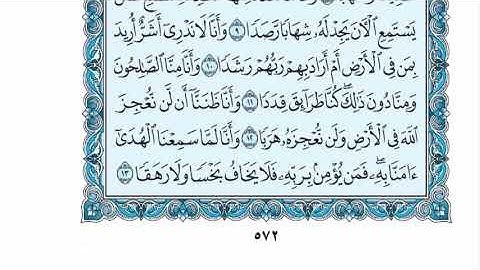 يَسْتَمِعِ ٱلْـَٔانَ يَجِدْ لَهُۥ شِهَابًا رَّصَدًا ٩ وَأَنَّا لَا نَدْرِىٓ أَشَرٌّ أُرِيدَ
بِمَن فِى ٱلْأَرْضِ أَمْ أَرَادَ بِهِمْ رَبُّهُمْ رَشَدًا ١٠ وَأَنَّا مِنَّا ٱلصَّـٰلِحُونَ
وَمِنَّا دُونَ ذَٰلِكَ ۖ كُنَّا طَرَآئِقَ قِدَدًا ١١ وَأَنَّا ظَنَنَّآ أَن لَّن نُّعْجِزَ
ٱللَّهَ فِى ٱلْأَرْضِ وَلَن نُّعْجِزَهُۥ هَرَبًا ١٢ وَأَنَّا لَمَّا سَمِعْنَا ٱلْهُدَىٰٓ
ءَامَنَّا بِهِۦ ۖ فَمَن يُؤْمِنۢ بِرَبِّهِۦ فَلَا يَخَافُ بَخْسًا وَلَا رَهَقًا ١٣
٥٧٢